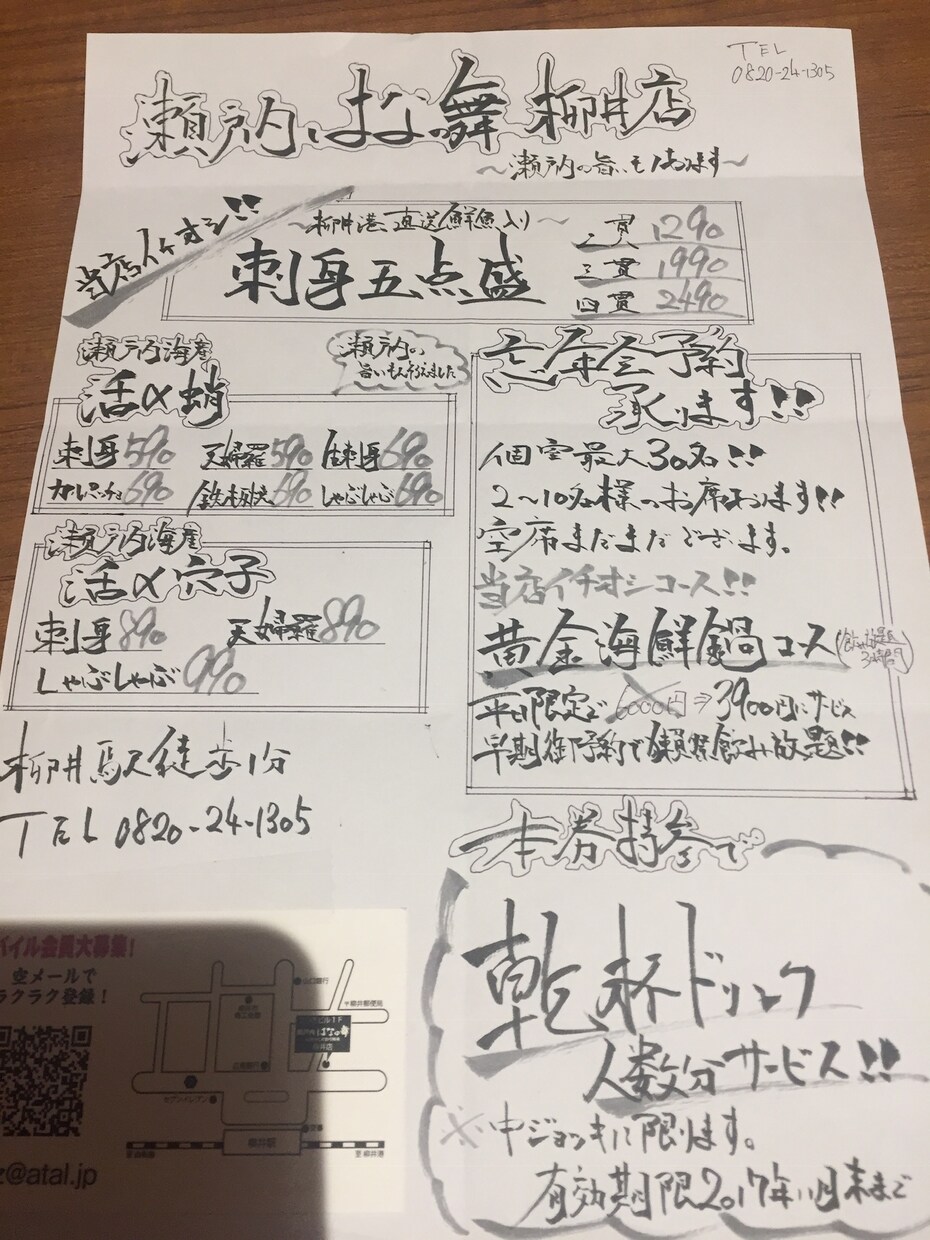 TEL
0820-24-1305
瀬戸内はな舞 柳井店
～瀬戸内の旨いもんあります～
当店イチオシ!!
～柳井港直送鮮魚入り～
刺身五点盛
二貫 1290
三貫 1990
四貫 2490
瀬戸内海産
活〆蛸
瀬戸内の
旨いもん揃えました
刺身590 天婦羅590 生刺身690
カルパッチョ690 鉄板焼690 しゃぶしゃぶ690
瀬戸内海産
活〆穴子
刺身890 天婦羅890
しゃぶしゃぶ990
忘年会予約
承ります!!
個室最大30名!!
2～10名様のお席あります!!
空席まだまだございます。
当店イチオシコース!!
黄金海鮮鍋コース
飲み放題
3時間
平日限定で6000円⇒3900円にサービス
早期御予約で獺祭飲み放題!!
柳井駅徒歩1分
TEL 0820-24-1305
本券持参で
乾杯ドリンク
人数分サービス!!
※中ジョッキに限ります。
有効期限2017年11月末まで
バイル会員大募集!
空メールで
ラクラク登録!
z@atal.jp
山口銀行
〒柳井郵便局
ビル1F
はなの舞
柳井店
セブンイレブン
柳井駅
至柳井港